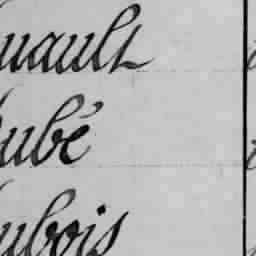 uault
ubé
ubois